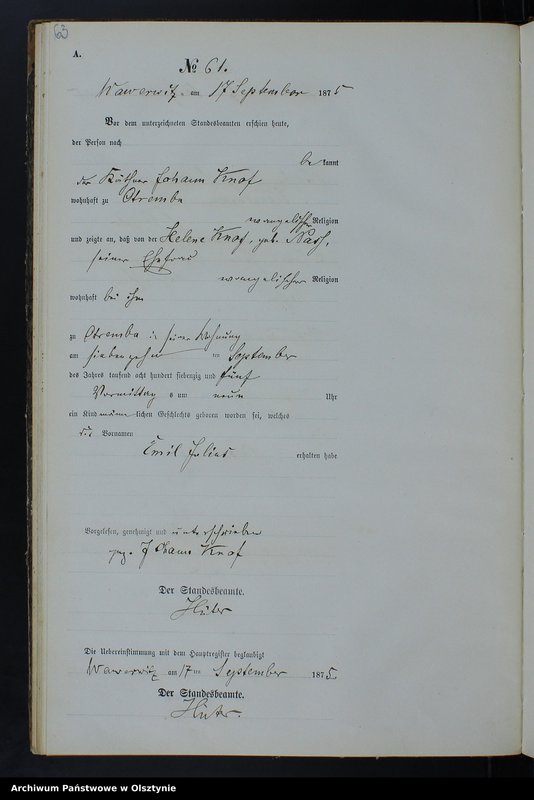 63
A.
№ 61.
Wawerwitz am 17 September 1875
Vor dem unterzeichneten Standesbeamten erschien heute,
der Person nach
be kannt
der Käthner Johann Knof
wohnhaft zu Otremba
evangelischer Religion
und zeigte an, daß von der Helene Knof, geb.
seiner Ehefrau
evangelischer Religion
wohnhaft bei ihm
zu Otremba in seiner Wohnung
am siebenzehn ten September
des Jahres tausend acht hundert siebenzig und fünf
Vormittag s um neun Uhr
ein Kind männ lichen Geschlechts geboren worden sei, welches
die Vornamen
Emil Julius erhalten habe
Vorgelesen, genehmigt und unterschrieben
gez. Johann Knof
Der Standesbeamte.
Hüter
Die Uebereinstimmung mit dem Hauptregister beglaubigt
Wawerwitz am 17 ten September 1875.
Der Standesbeamte.
Hüter.
Archiwum Państwowe w Olsztynie